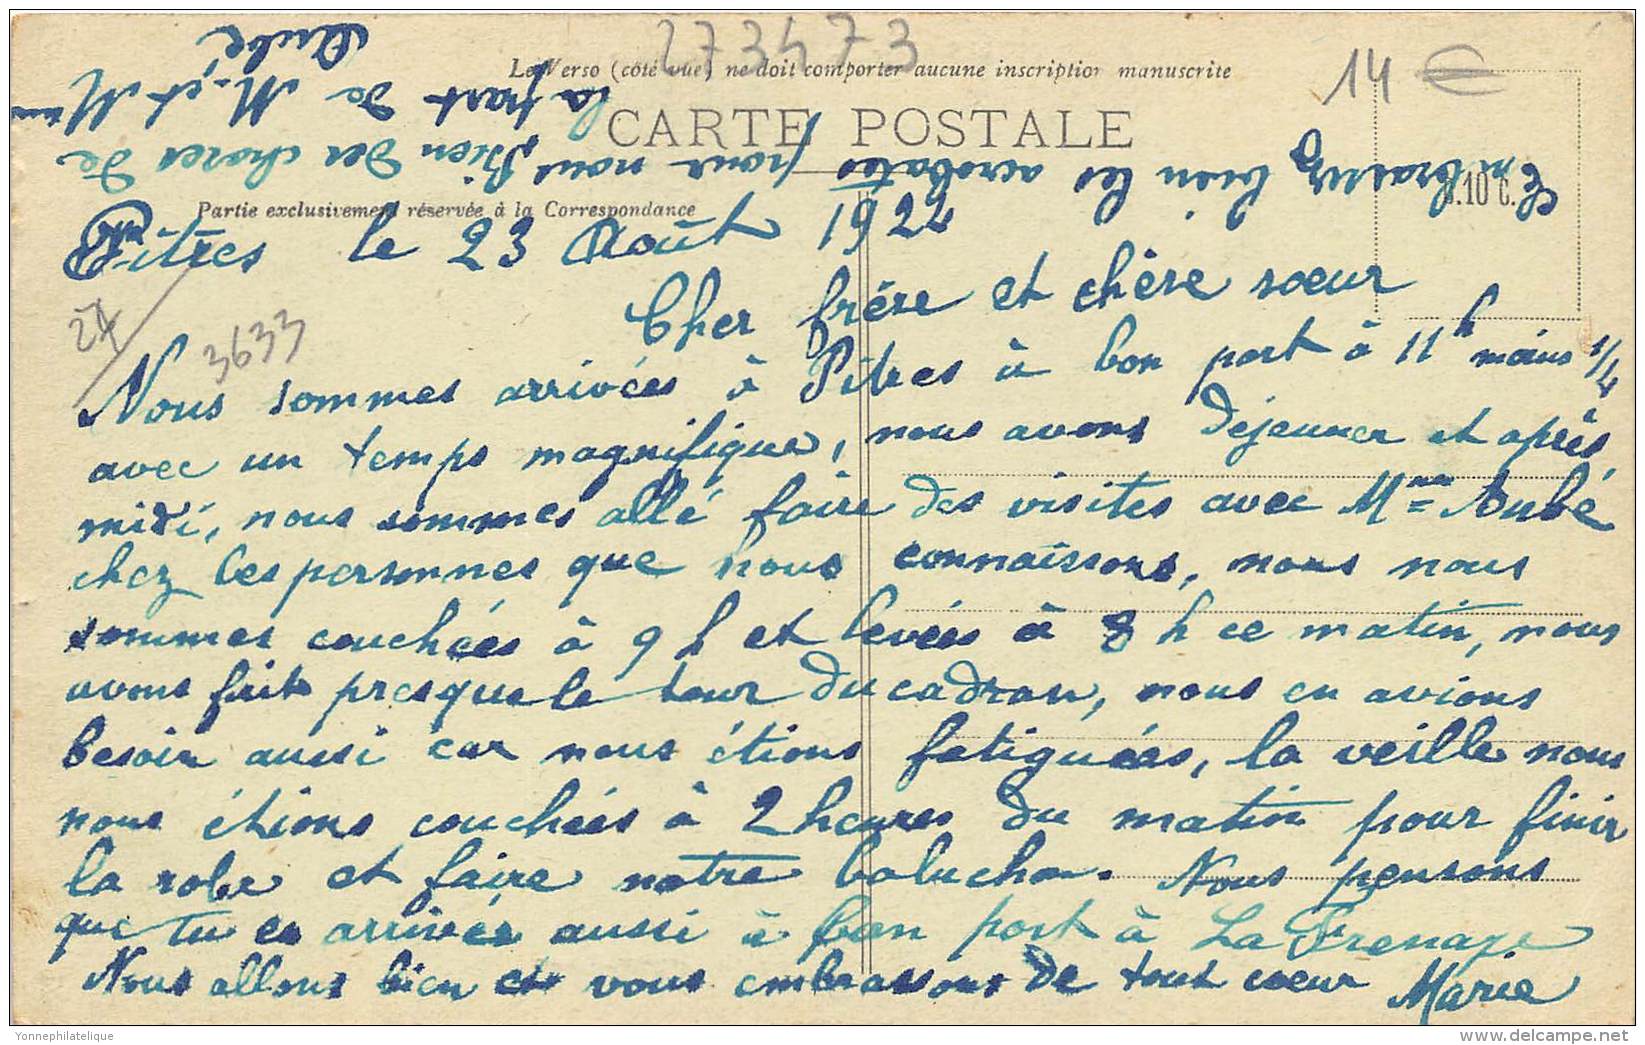 273473
Le Verso (côté vue) ne doit comporter aucune inscription manuscrite
14 €
CARTE POSTALE
10 c.
Partie exclusivement réservée à la Correspondance
Pîtres le 23 Août 1922
27
3633
Cher frère et chère sœur
Nous sommes arrivées à Pîtres à bon port à 11h moins 1/4
avec un temps magnifique, nous avons déjeuner et après
midi, nous sommes allé faire des visites avec Mme Aubé
chez les personnes que nous connaissons, nous nous
sommes couchées à 9 h et levées à 8 h ce matin, nous
avons fait presque le tour du cadran, nous en avions
besoin aussi car nous étions fatiguées, la veille nous
nous étions couchées à 2 heures du matin pour finir
la robe et faire notre baluchon. Nous pensons
que tu es arrivée aussi à bon port à La Frenaye
Nous allons bien et vous embrassons de tout cœur Marie
Embrassez bien les acrobates pour nous, Bien des choses de
la part de M. et Mme
Aubé
Yonnephilatelique
www.delcampe.net